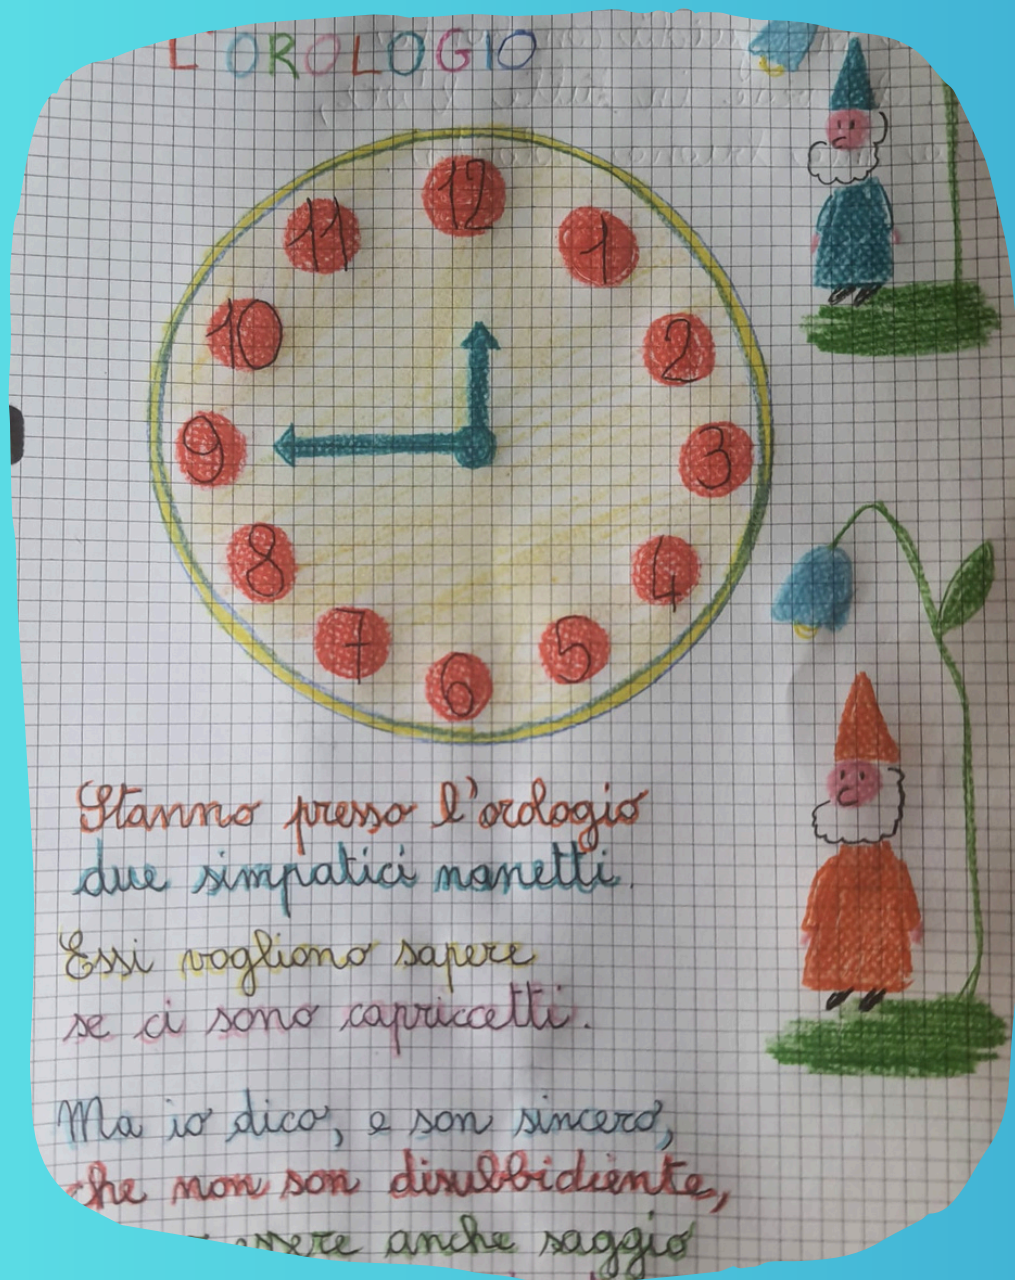 L'OROLOGIO
12
11
1
10
2
9
3
8
4
7
5
6
Stanno presso l'orologio
due simpatici nanetti.
Essi vogliono sapere
se ci sono capriccetti.
Ma io dico, e son sincero,
che non son disubbidiente,
essere anche saggio